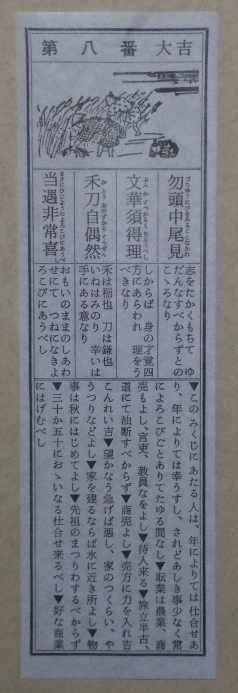 第八番 大吉
づちゅうにびをみることなかれ
勿頭中尾見
志をたかくもちて ゆ
だんなすべからずとの
こゝろなり
ぶんかすべからくりをうべし
文華須得理
しからば 身の才覚四
方にあらわれ 理をう
べきなり
かとうおのずからぐうぜん
禾刀自偶然
禾は稲也 刀は鎌也
いねはみのり 幸いは
手にある意なり
まさにひじょうのよろこびにあうべし
当遇非常喜
おもいのままのしあわ
せにて つねになきよ
ろこびにあうべし
▼このみくじにあたる人は、年によりては仕合せあ
り、年によりては幸うすし、されどあしき事少なく常
によろこびごとありてたゆる間なし▼耺業は農業、商
売もよし、官吏、教員なをよし▼待人来る▼旅立半吉、
道にて油断すべからず▼商売よし▼売方に力を入れ吉
こんれい吉▼望かなう急げば悪し、家のつくらい、や
うつりなどよし▼家を建るならば水に近き所よし▼物
事は秋にはじめてよし▼先祖のまつりわするべからず
▼三十か五十におゝいなる仕合せ来るべし▼好な商業
にはげむべし